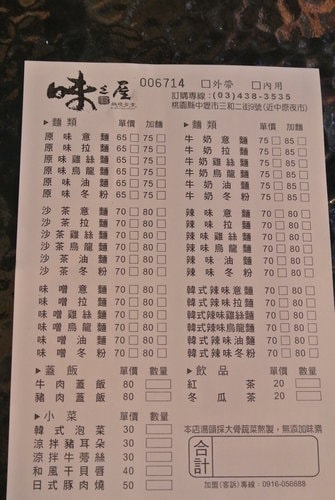 味之屋
006714 □外帶 □內用
訂購專線：(03)438-3535
桃園縣中壢市三和二街9號(近中原夜市)
▶麵類 單價 加麵
原味意麵 65□ 75□
原味拉麵 65□ 75□
原味雞絲麵 65□ 75□
原味烏龍麵 65□ 75□
原味油麵 65□ 75□
原味冬粉 65□ 75□
沙茶意麵 70□ 80□
沙茶拉麵 70□ 80□
沙茶雞絲麵 70□ 80□
沙茶烏龍麵 70□ 80□
沙茶油麵 70□ 80□
沙茶冬粉 70□ 80□
味噌意麵 70□ 80□
味噌拉麵 70□ 80□
味噌雞絲麵 70□ 80□
味噌烏龍麵 70□ 80□
味噌油麵 70□ 80□
味噌冬粉 70□ 80□
▶蓋飯 單價 數量
牛肉蓋飯 80
豬肉蓋飯 80
▶小菜 單價 數量
韓式泡菜 30
涼拌豬耳朵 30
涼拌牛蒡絲 30
和風干貝唇 40
日式豚肉燒 50
▶麵類 單價 加麵
牛奶意麵 75□ 85□
牛奶拉麵 75□ 85□
牛奶雞絲麵 75□ 85□
牛奶烏龍麵 75□ 85□
牛奶油麵 75□ 85□
牛奶冬粉 75□ 85□
辣味意麵 70□ 80□
辣味拉麵 70□ 80□
辣味雞絲麵 70□ 80□
辣味烏龍麵 70□ 80□
辣味油麵 70□ 80□
辣味冬粉 70□ 80□
韓式辣味意麵 70□ 80□
韓式辣味拉麵 70□ 80□
韓式辣味雞絲麵 70□ 80□
韓式辣味烏龍麵 70□ 80□
韓式辣味油麵 70□ 80□
韓式辣味冬粉 70□ 80□
▶飲品 單價 數量
紅茶 20
冬瓜茶 20
本店湯頭採大骨蔬菜熬製，無添加味素
合計
加盟(客訴)專線：0916-056688